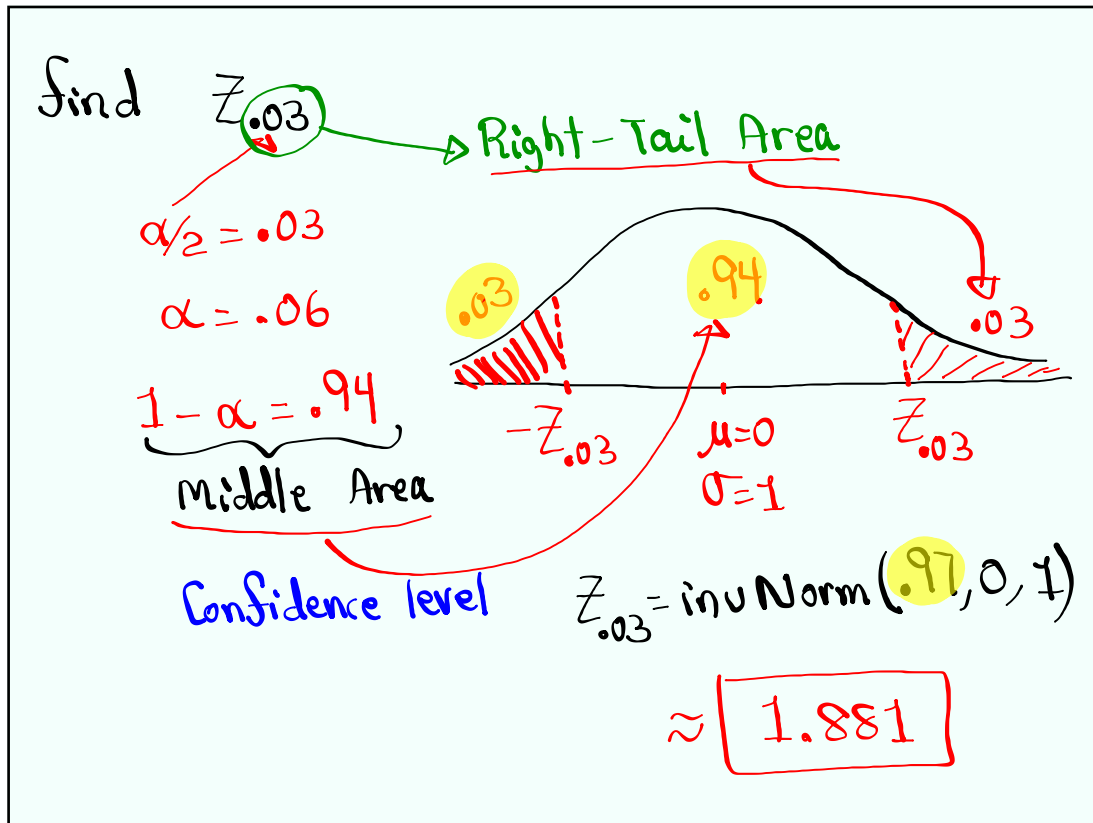 find Z.03
Right-Tail Area
α/2 = .03
α = .06
1 - α = .94
Middle Area
Confidence level
.03
.94
.03
-Z.03
μ=0
σ=1
Z.03
Z.03 = invNorm(.97, 0, 1)
≈ 1.881